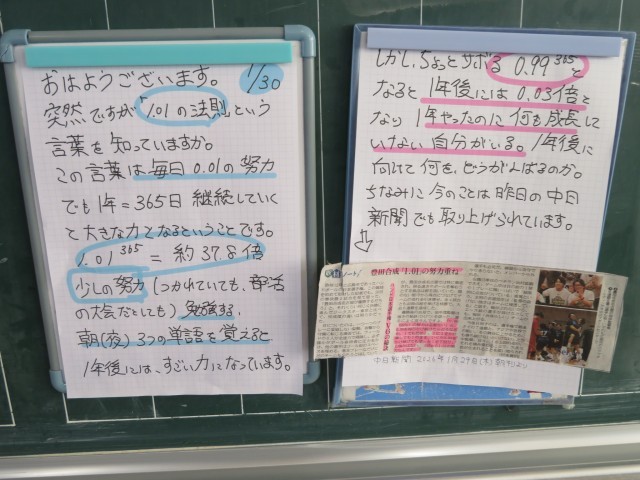 おはようございます。 1/30
突然ですが「1.01の法則」という
言葉を知っていますか。
この言葉は毎日0.01の努力
でも1年=365日継続していく
と大きな力となるということです。
1.01^365 = 約37.8倍
少しの努力(つかれていても、部活
の大会だとしても)勉強する、
朝(夜)3つの単語を覚えると
1年後には、すごい力になっています。
しかし、ちょっとサボる 0.99^365 と
なると1年後には0.03倍と
なり1年やったのに何も成長して
いない自分がいる。1年後に
向けて何を、どうがんばるのか。
ちなみに今のことは昨日の中日
新聞でも取り上げられています。
↓
豊田合成「1.01」の努力重ね
中日新聞 2026年1月29日(木)朝刊より